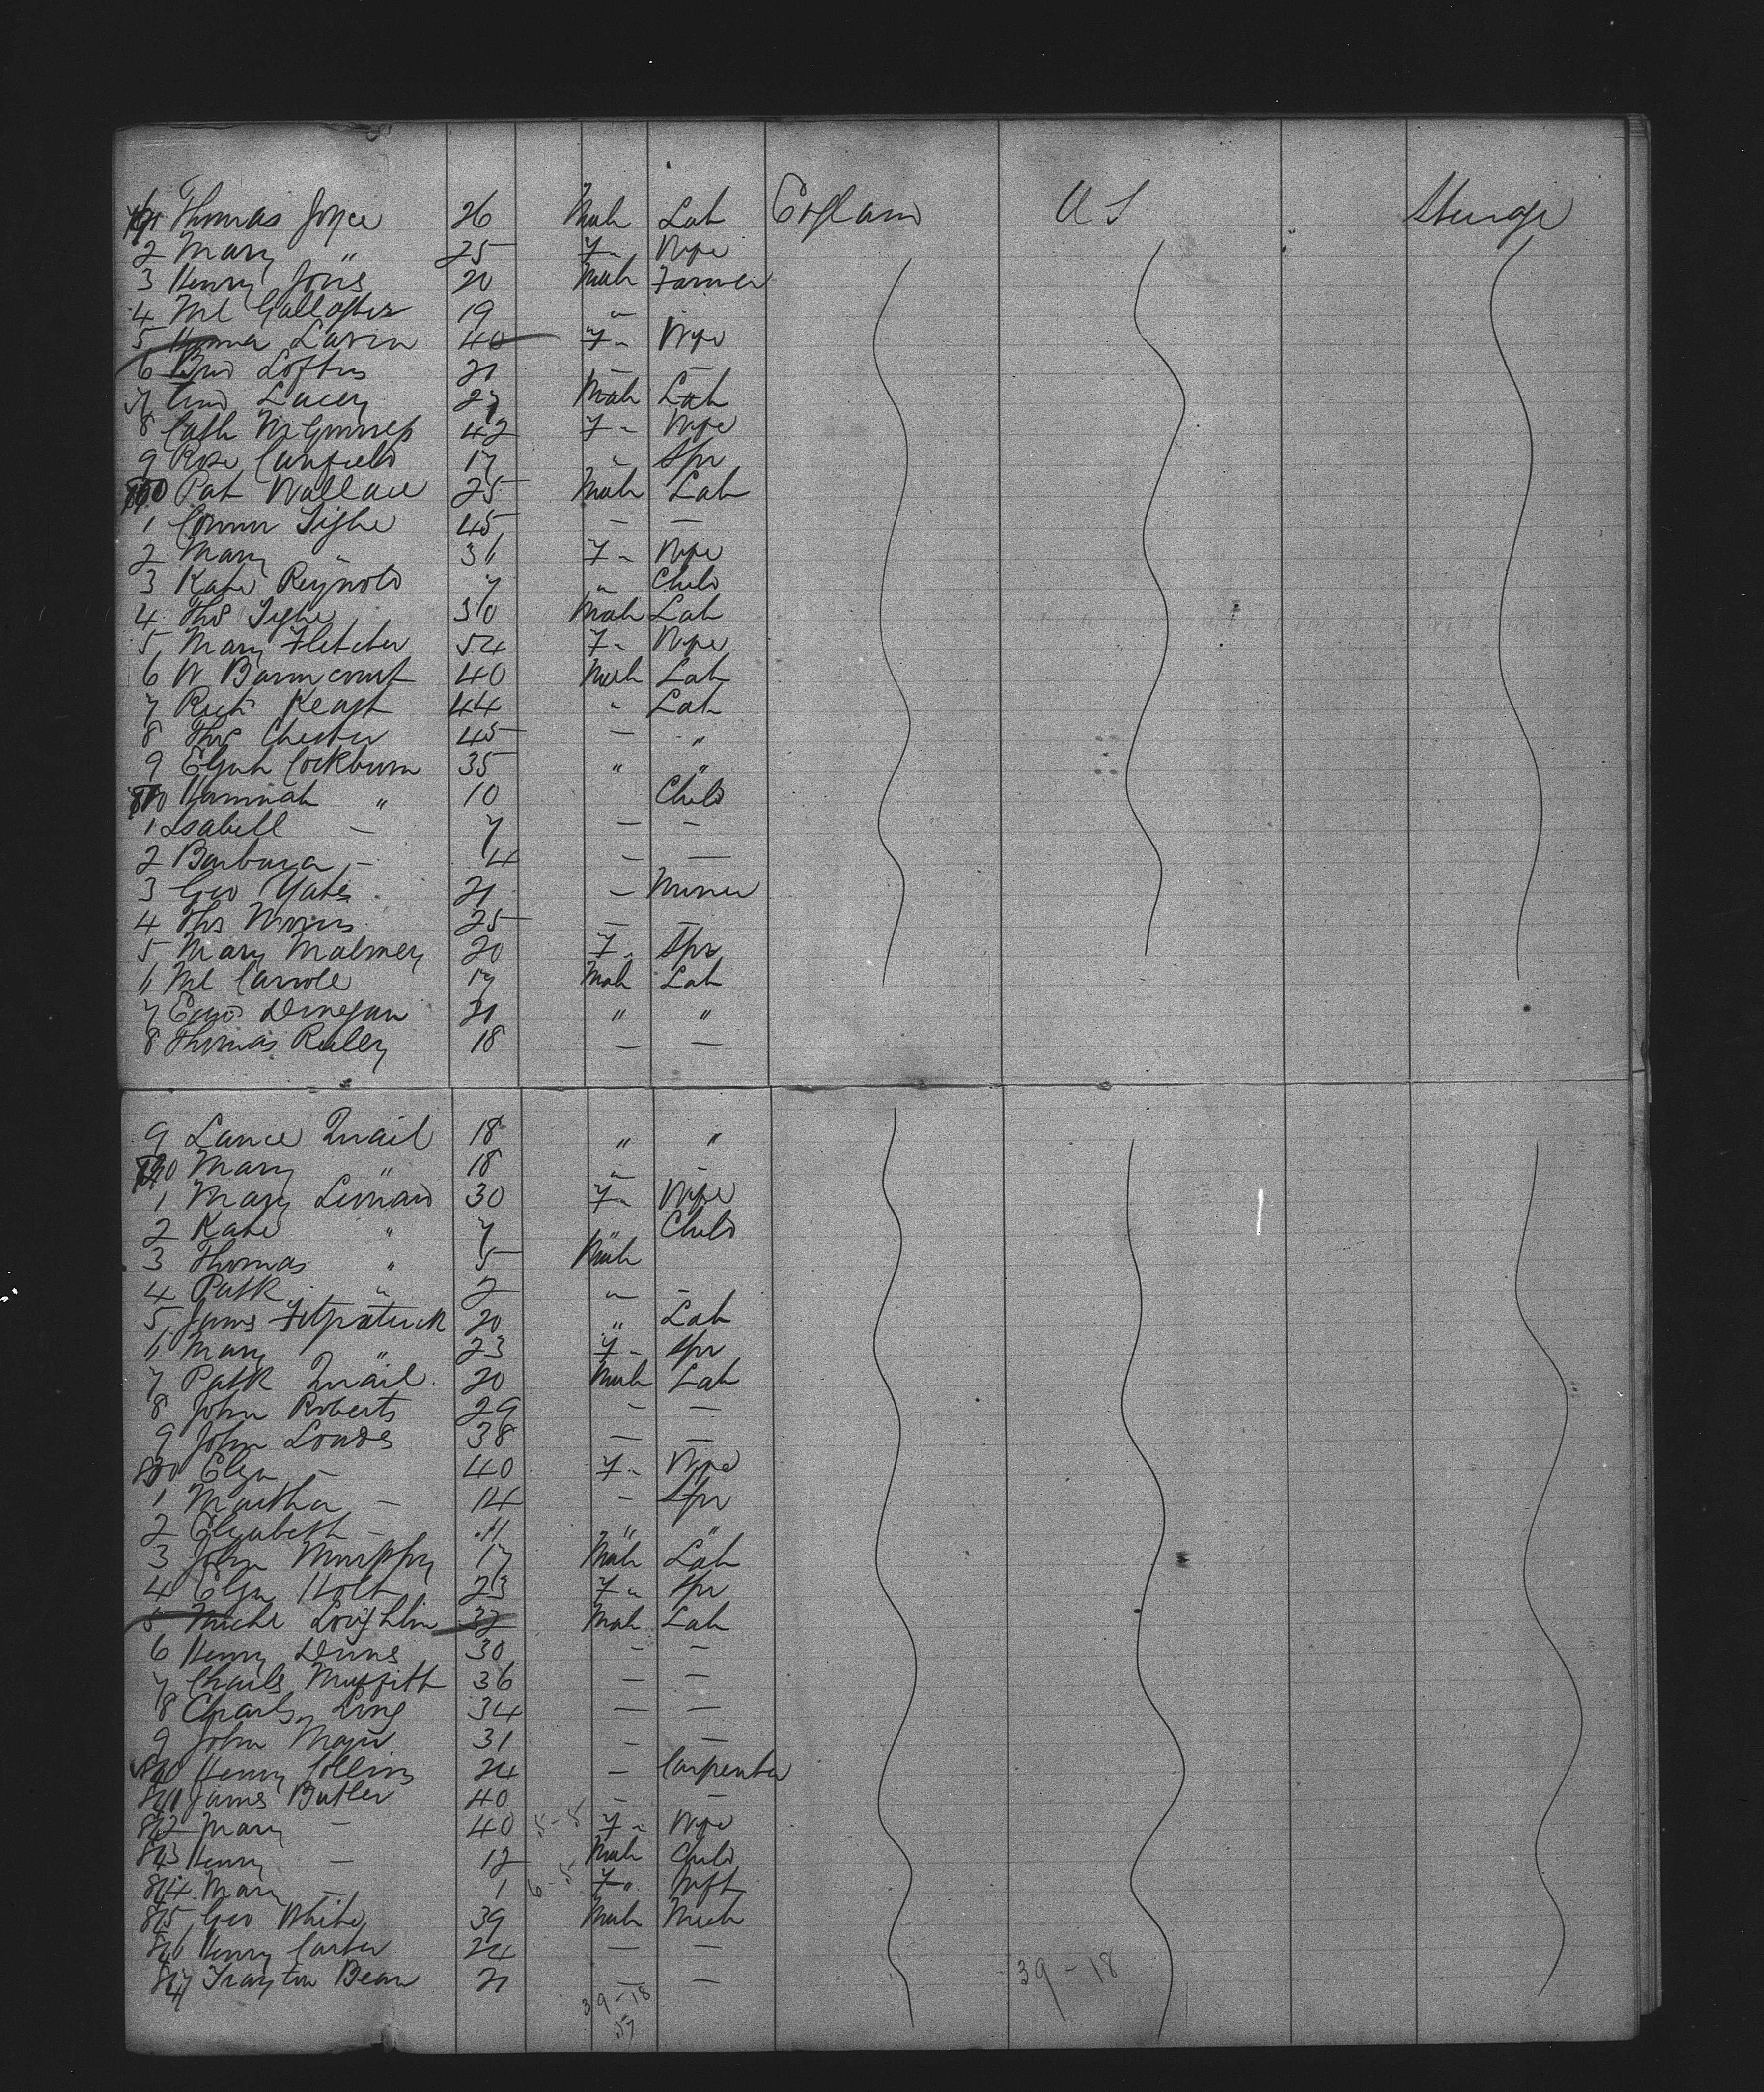 Thomas Joyce 26 Male Lab England U S Steerage
2 Mary " 25 F " Wife
3 Henry Jons 20 Male Farmer
4 Ml Gallagher 19 "
5 Lavin 40 F " Wife
6 Brid Loftus 21 —
7 Lacey 27 Male Lab
8 Cath McGuiness 42 F " Wife
9 Rose Canfield 17 " Spr
Pat Wallace 25 Male Lab
1 Tighe 45 — —
2 Mary " 31 F " Wife
3 Kate Reynold 7 " Child
4 Ths Tighe 30 Male Lab
5 Mary Fletcher 54 F " Wife
6 W 40 Male Lab
7 Richd Keast 44 " Lab
8 Ths Chester 45 — "
9 Cockburn 35 " "
Hannah " 10 Child
1 Isabell — 7 — —
2 Barbara — 4 — —
3 Geo Yates 21 — Miner
4 Ths Morris 25 — —
5 Mary 20 F " Spr
6 Ml Carrole 17 Male Lab
7 21 " "
8 Thomas 18 — —
9 Lance Quail 18 " "
Mary " 18 " —
1 Mary Leonard 30 F " Wife
2 Kate " 7 " Child
3 Thomas " 5 Male
4 Patk " 2 " —
5 James Fitzpatrick 20 " Lab
6 Mary " 23 F " Spr
7 Patk Quail 20 Male Lab
8 John Roberts 29 — —
9 John 38 — —
830 Eliza — 40 F " Wife
1 Martha — 14 — Spr
2 Elizabeth — 11 " "
3 John Murphy 17 Male Lab
4 Eliza Holt 23 F " Spr
5 Michl Loughlin 32 Male Lab
6 Henry 30 — —
7 Charles 36 — —
8 Charles 34 — —
9 John 31 — —
840 Henry Collins 24 — Carpenter
841 James Butler 40 — —
842 Mary — 40 F " Wife
843 Henry — 12 Male Child
844 Mary — 1 F " Inft
845 Geo White 39 Male Mech
846 Henry Carter 24 — —
847 Bean 21 — —
39 - 18
39 - 18
57